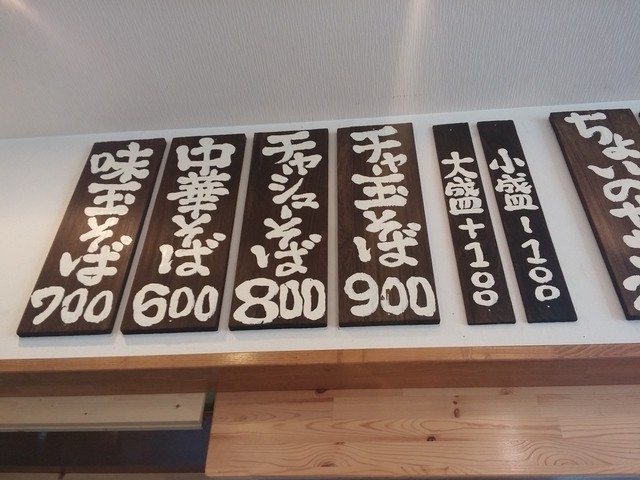 味玉そば
700
中華そば
600
チャーシューそば
800
チャー玉そば
900
大盛+100
小盛-100
ちょいのせ